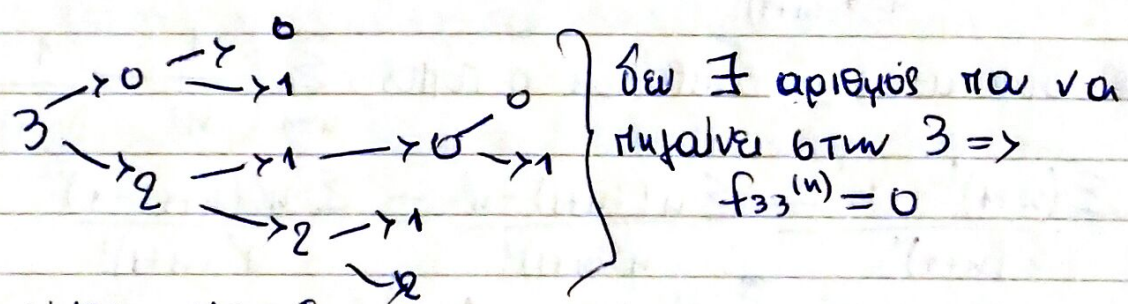 0
0 1
3 0
2 1 0 1
2 1
2
δεν ∃ αριθμός που να
πηγαίνει στην 3 =>
f₃₃⁽ⁿ⁾ = 0